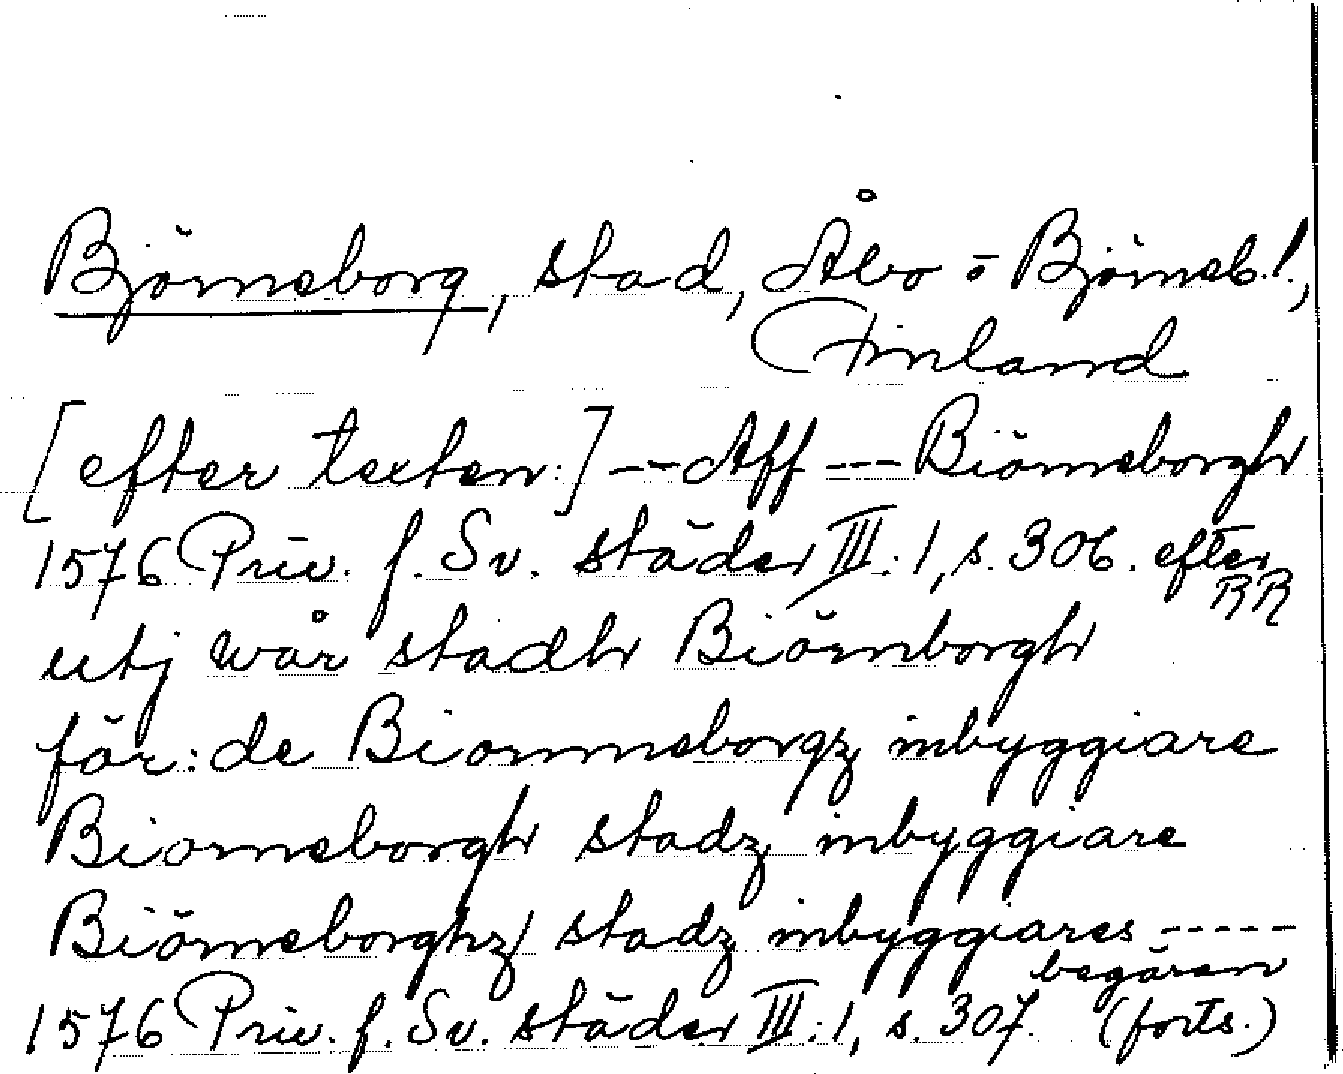 Björneborg, stad, Åbo o Björneb. l.,
Finland
[efter texten:] --- Aff --- Biörneborgh
1576 Priv. f. Sv. städer III:1, s. 306. efter
RR
utj wår stadh Biörnborgh
för: de Biornneborgz inbyggiare
Biorneborgh stadz inbyggiare
Biörneborghz stadz inbyggiares -----
begären
1576 Priv. f. Sv. städer III:1, s. 307. (forts.)